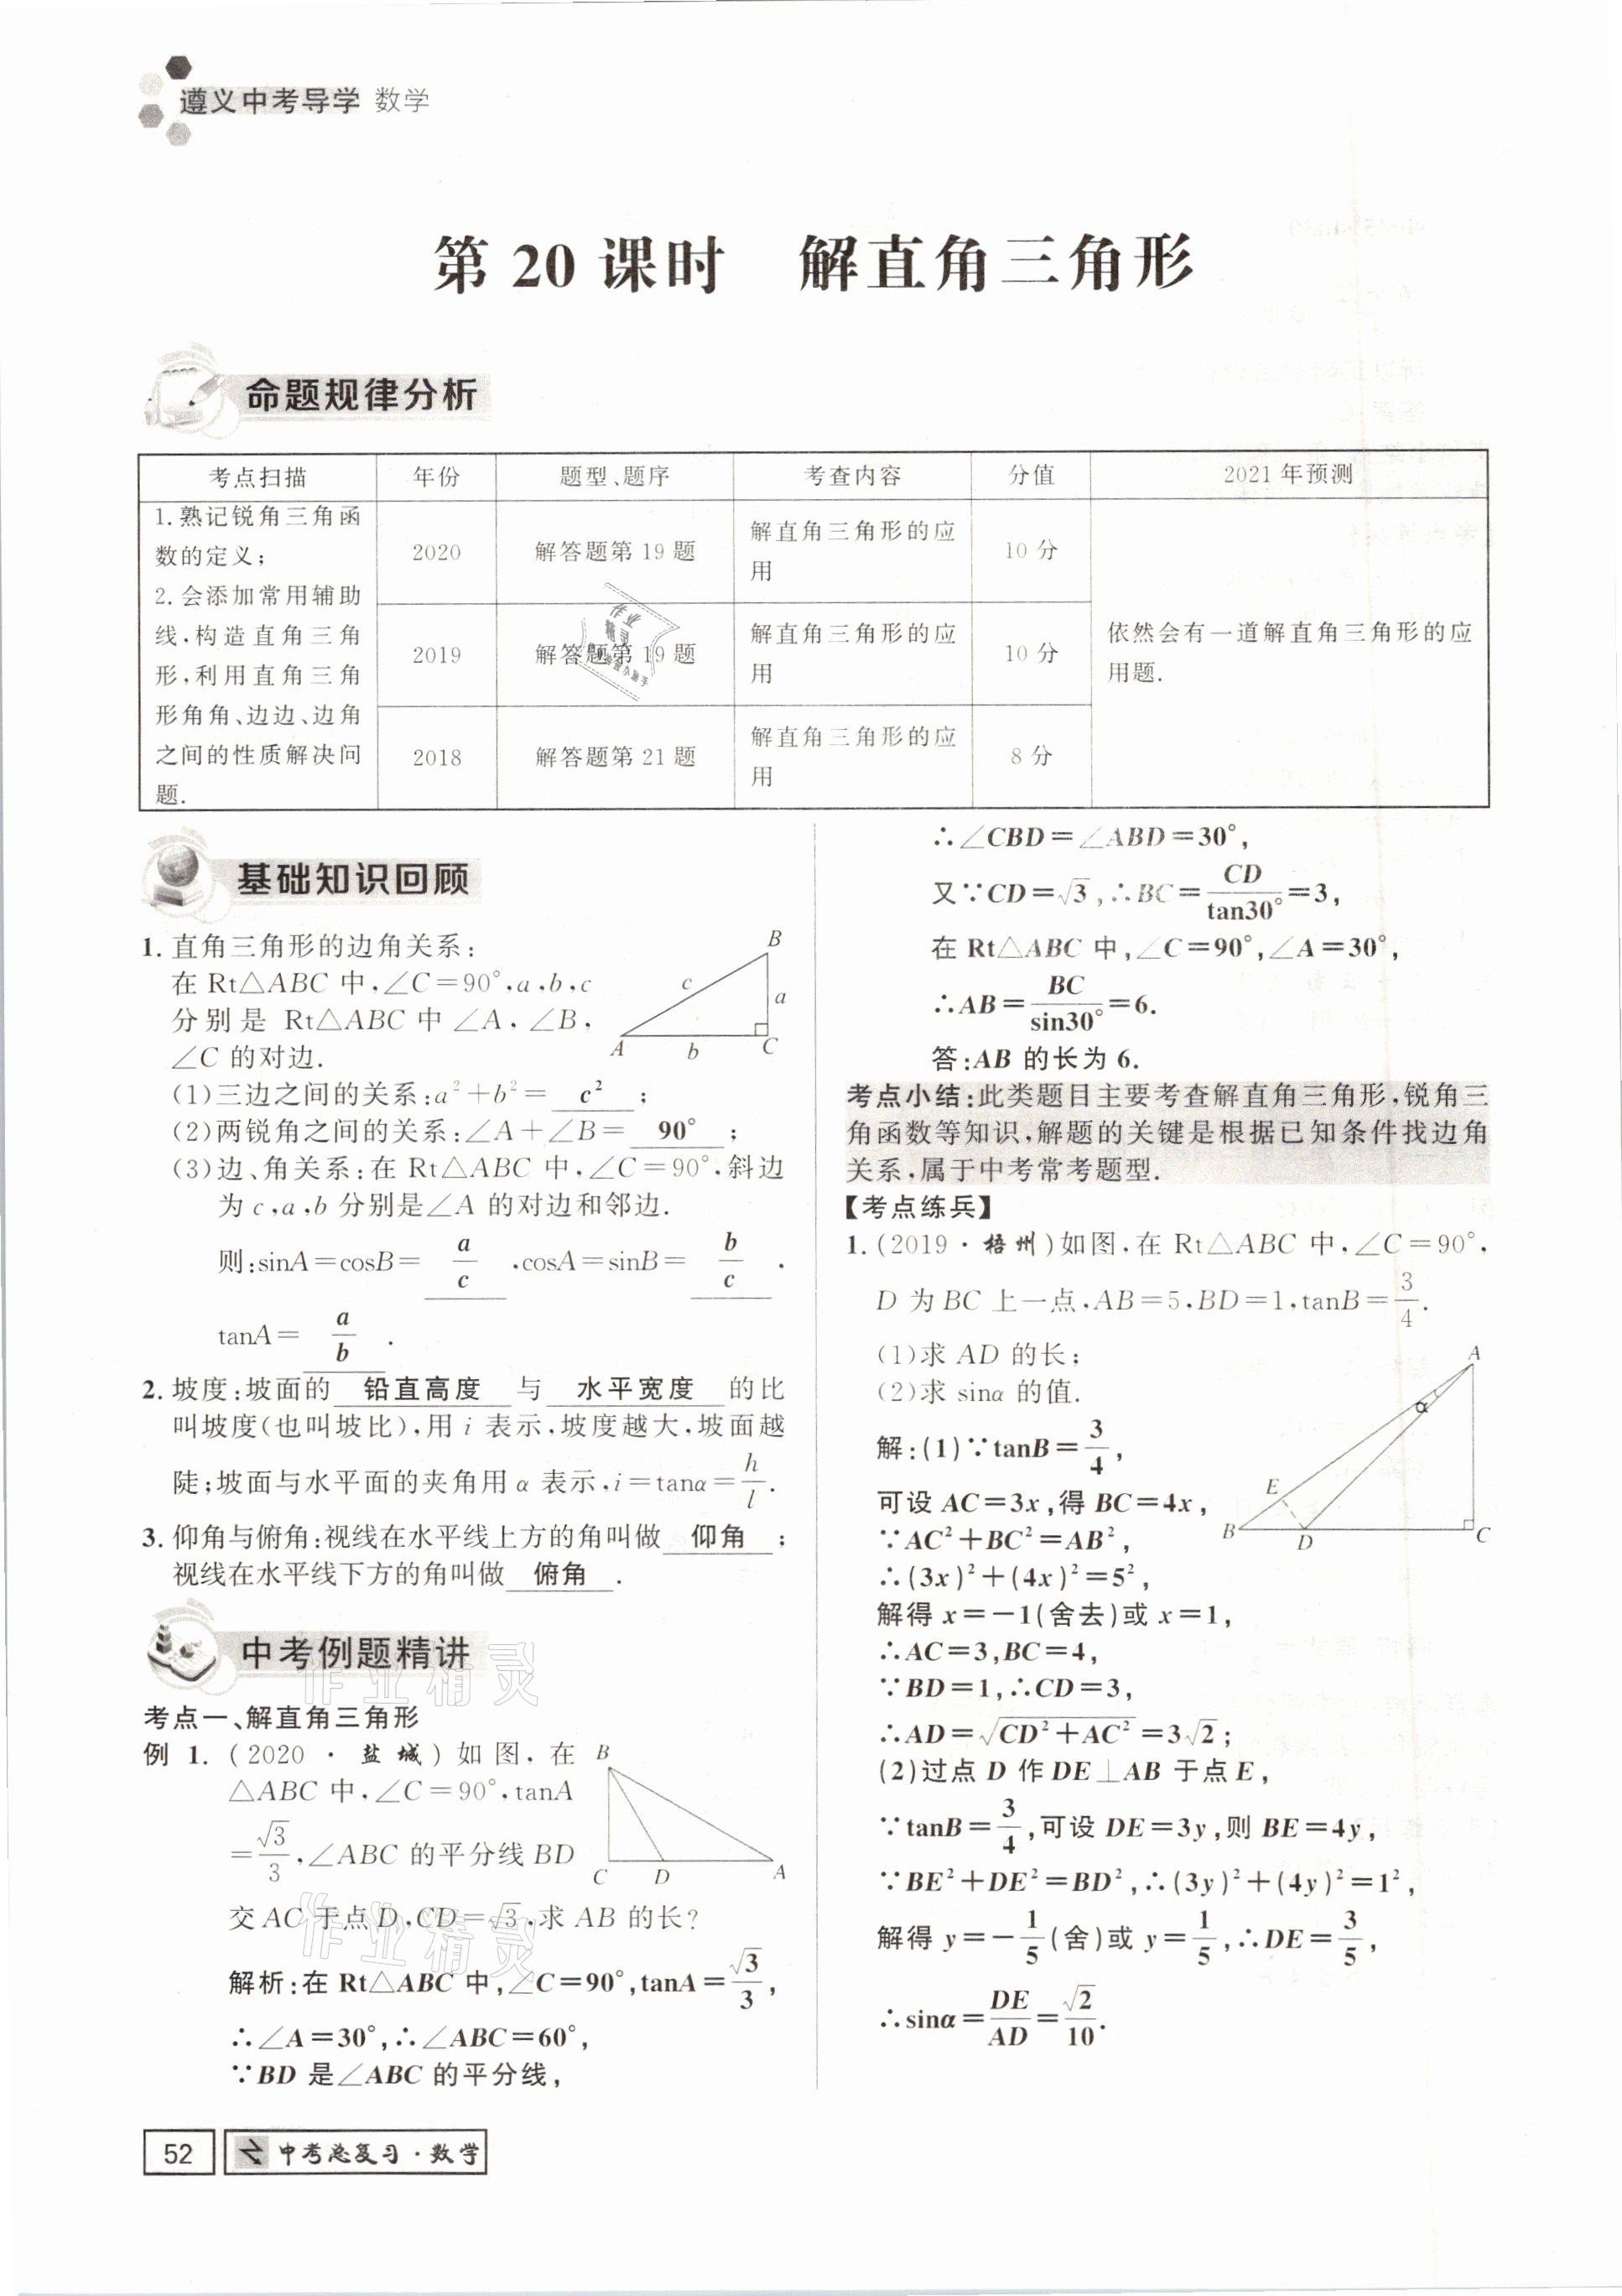 遵义中考导学 数学
第 20 课时 解直角三角形
命题规律分析
考点扫描 年份 题型、题序 考查内容 分值 2021 年预测
1. 熟记锐角三角函
数的定义;
2. 会添加常用辅助
线,构造直角三角
形,利用直角三角
形角角、边边、边角
之间的性质解决问
题.
2020 解答题第 19 题 解直角三角形的应
用 10 分
2019 解答题第 19 题 解直角三角形的应
用 10 分
2018 解答题第 21 题 解直角三角形的应
用 8 分
依然会有一道解直角三角形的应
用题.
基础知识回顾
1. 直角三角形的边角关系:
在 Rt△ABC 中,∠C=90°,a,b,c
分别是 Rt△ABC 中 ∠A,∠B,
∠C 的对边.
B
c
a
A
b
C
(1)三边之间的关系:a²+b²= c² ;
(2)两锐角之间的关系:∠A+∠B= 90° ;
(3)边、角关系:在 Rt△ABC 中,∠C=90°,斜边
为 c,a,b 分别是∠A 的对边和邻边.
则:sinA=cosB= a/c ,cosA=sinB= b/c .
tanA= a/b .
2. 坡度:坡面的 铅直高度 与 水平宽度 的比
叫坡度(也叫坡比),用 i 表示,坡度越大,坡面越
陡;坡面与水平面的夹角用 α 表示,i=tanα=h/l.
3. 仰角与俯角:视线在水平线上方的角叫做 仰角 ;
视线在水平线下方的角叫做 俯角 .
中考例题精讲
考点一、解直角三角形
例 1. (2020 · 盐城) 如图,在
△ABC 中,∠C=90°,tanA
=√3/3,∠ABC 的平分线 BD
交 AC 于点 D,CD=√3,求 AB 的长?
B
C
D
A
解析:在 Rt△ABC 中,∠C=90°,tanA=√3/3,
∴∠A=30°,∴∠ABC=60°,
∵BD 是∠ABC 的平分线,
∴∠CBD=∠ABD=30°,
又∵CD=√3,∴BC=CD/tan30°=3,
在 Rt△ABC 中,∠C=90°,∠A=30°,
∴AB=BC/sin30°=6.
答:AB 的长为 6.
考点小结:此类题目主要考查解直角三角形,锐角三
角函数等知识,解题的关键是根据已知条件找边角
关系,属于中考常考题型.
【考点练兵】
1. (2019 · 梧州)如图,在 Rt△ABC 中,∠C=90°,
D 为 BC 上一点,AB=5,BD=1,tanB=3/4.
(1)求 AD 的长;
(2)求 sinα 的值.
A
α
E
B
D
C
解:(1)∵tanB=3/4,
可设 AC=3x,得 BC=4x,
∵AC²+BC²=AB²,
∴(3x)²+(4x)²=5²,
解得 x=-1(舍去)或 x=1,
∴AC=3,BC=4,
∵BD=1,∴CD=3,
∴AD=√(CD²+AC²)=3√2;
(2)过点 D 作 DE⊥AB 于点 E,
∵tanB=3/4,可设 DE=3y,则 BE=4y,
∵BE²+DE²=BD²,∴(3y)²+(4y)²=1²,
解得 y=-1/5(舍)或 y=1/5,∴DE=3/5,
∴sinα=DE/AD=√2/10.
52
中考总复习 · 数学
作业精灵
作业精灵